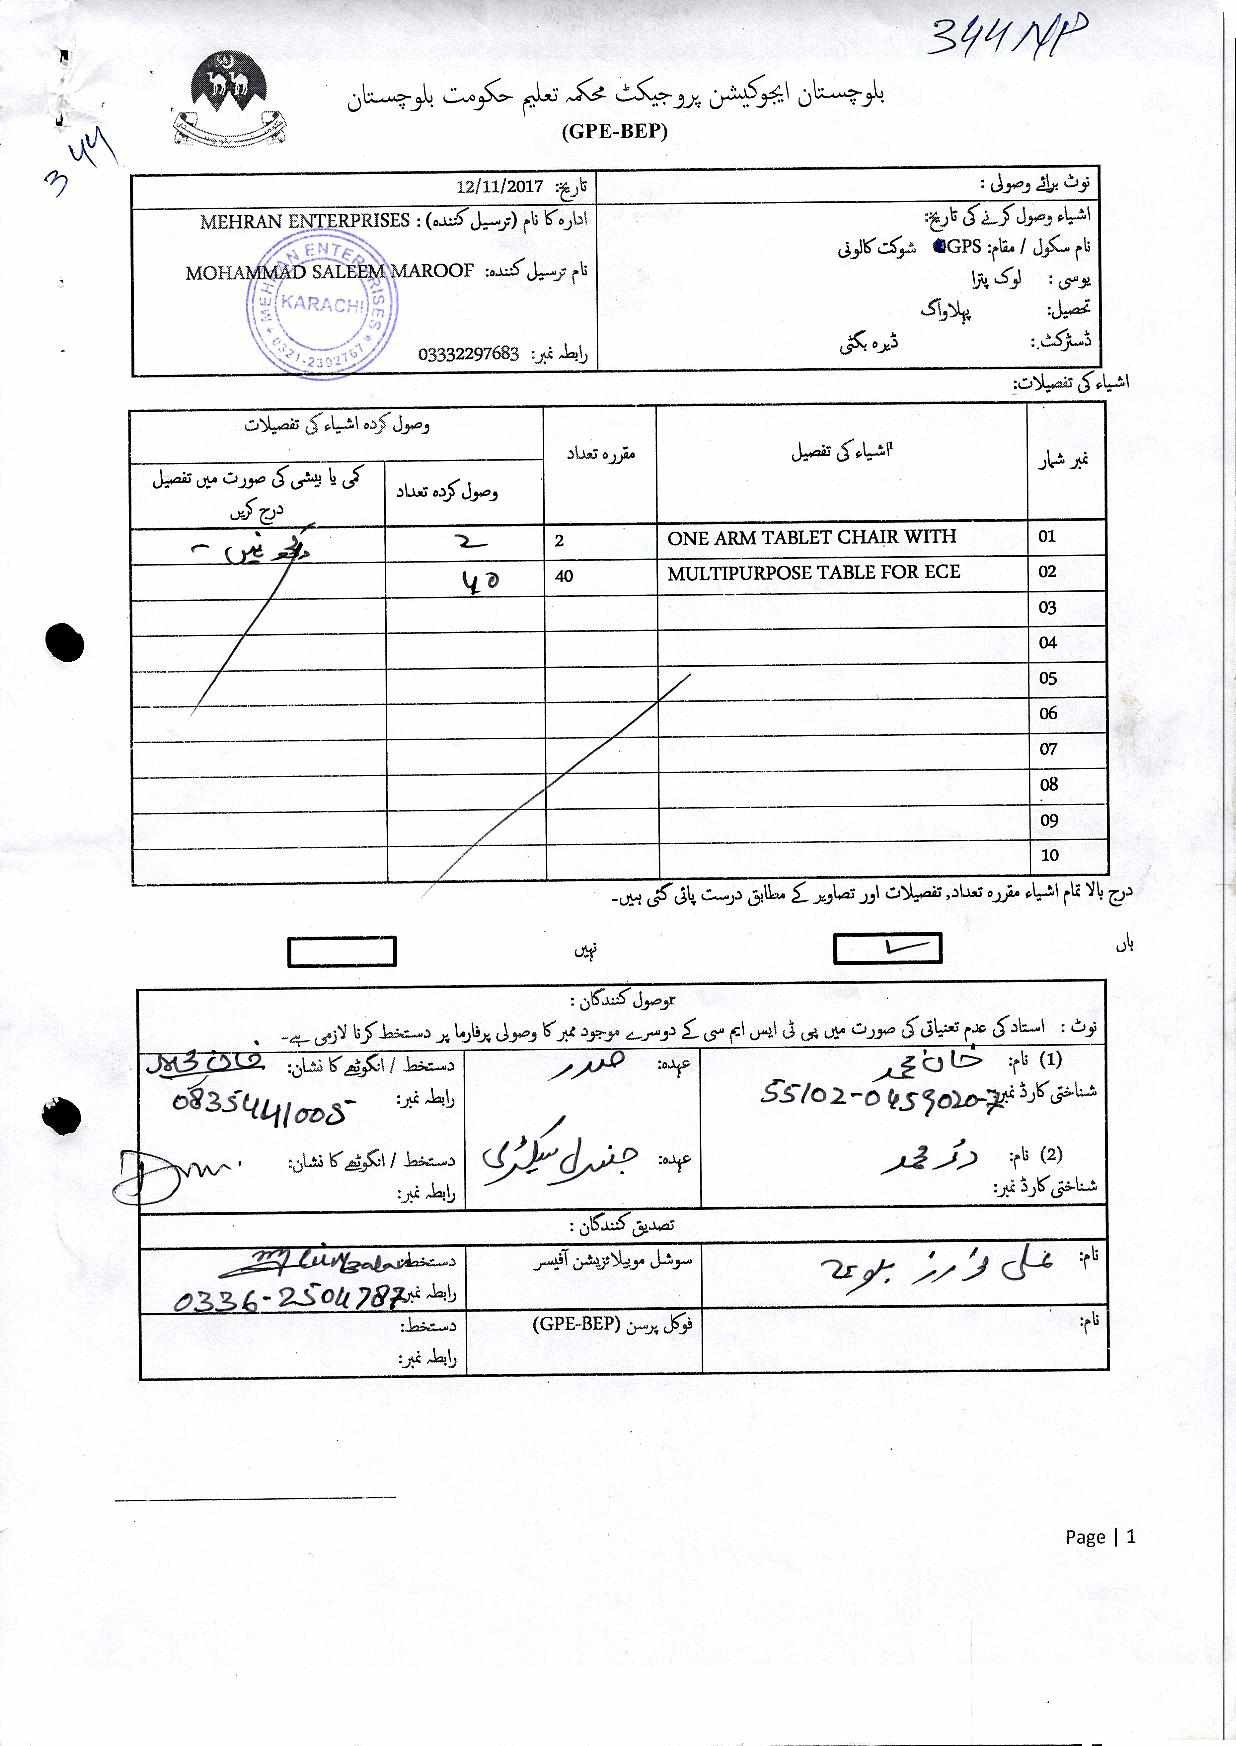 344 NP
344
بلوچستان ایجوکیشن پروجیکٹ محکمہ تعلیم حکومت بلوچستان
(GPE-BEP)
نوٹ برائے وصولی :
تاریخ: 12/11/2017
اشیاء وصول کرنے کی تاریخ:
نام سکول / مقام: GPS شوکت کالونی
یوسی : لوک پترا
تحصیل: پہلاواگ
ڈسٹرکٹ: ڈیرہ بگٹی
ادارہ کا نام (ترسیل کنندہ) : MEHRAN ENTERPRISES
نام ترسیل کنندہ: MOHAMMAD SALEEM MAROOF
رابطہ نمبر: 03332297683
MEHRAN ENTERPRISES
KARACHI
0321-2392767
اشیاء کی تفصیلات:
نمبر شمار
اشیاء کی تفصیل
مقررہ تعداد
وصول کردہ اشیاء کی تفصیلات
وصول کردہ تعداد
کمی یا بیشی کی صورت میں تفصیل درج کریں
01 ONE ARM TABLET CHAIR WITH 2 2
02 MULTIPURPOSE TABLE FOR ECE 40 40
03
04
05
06
07
08
09
10
درج بالا تمام اشیاء مقررہ تعداد, تفصیلات اور تصاویر کے مطابق درست پائی گئی ہیں۔
ہاں
نہیں
وصول کنندگان :
نوٹ : استاد کی عدم تعیناتی کی صورت میں پی ٹی ایس ایم سی کے دوسرے موجود ممبر کا وصولی پرفارما پر دستخط کرنا لازمی ہے۔
(1) نام: خان محمد
عہدہ: صدر
دستخط / انگوٹھے کا نشان: خان محمد
شناختی کارڈ نمبر: 55102-0459020-7
رابطہ نمبر: 0835441005
(2) نام:
عہدہ: جنرل سیکٹری
دستخط / انگوٹھے کا نشان:
شناختی کارڈ نمبر:
رابطہ نمبر:
تصدیق کنندگان :
نام: علی نواز بلوچ
سوشل موبلائزیشن آفیسر
دستخط:
رابطہ نمبر: 0336-2504787
نام:
فوکل پرسن (GPE-BEP)
دستخط:
رابطہ نمبر:
Page | 1